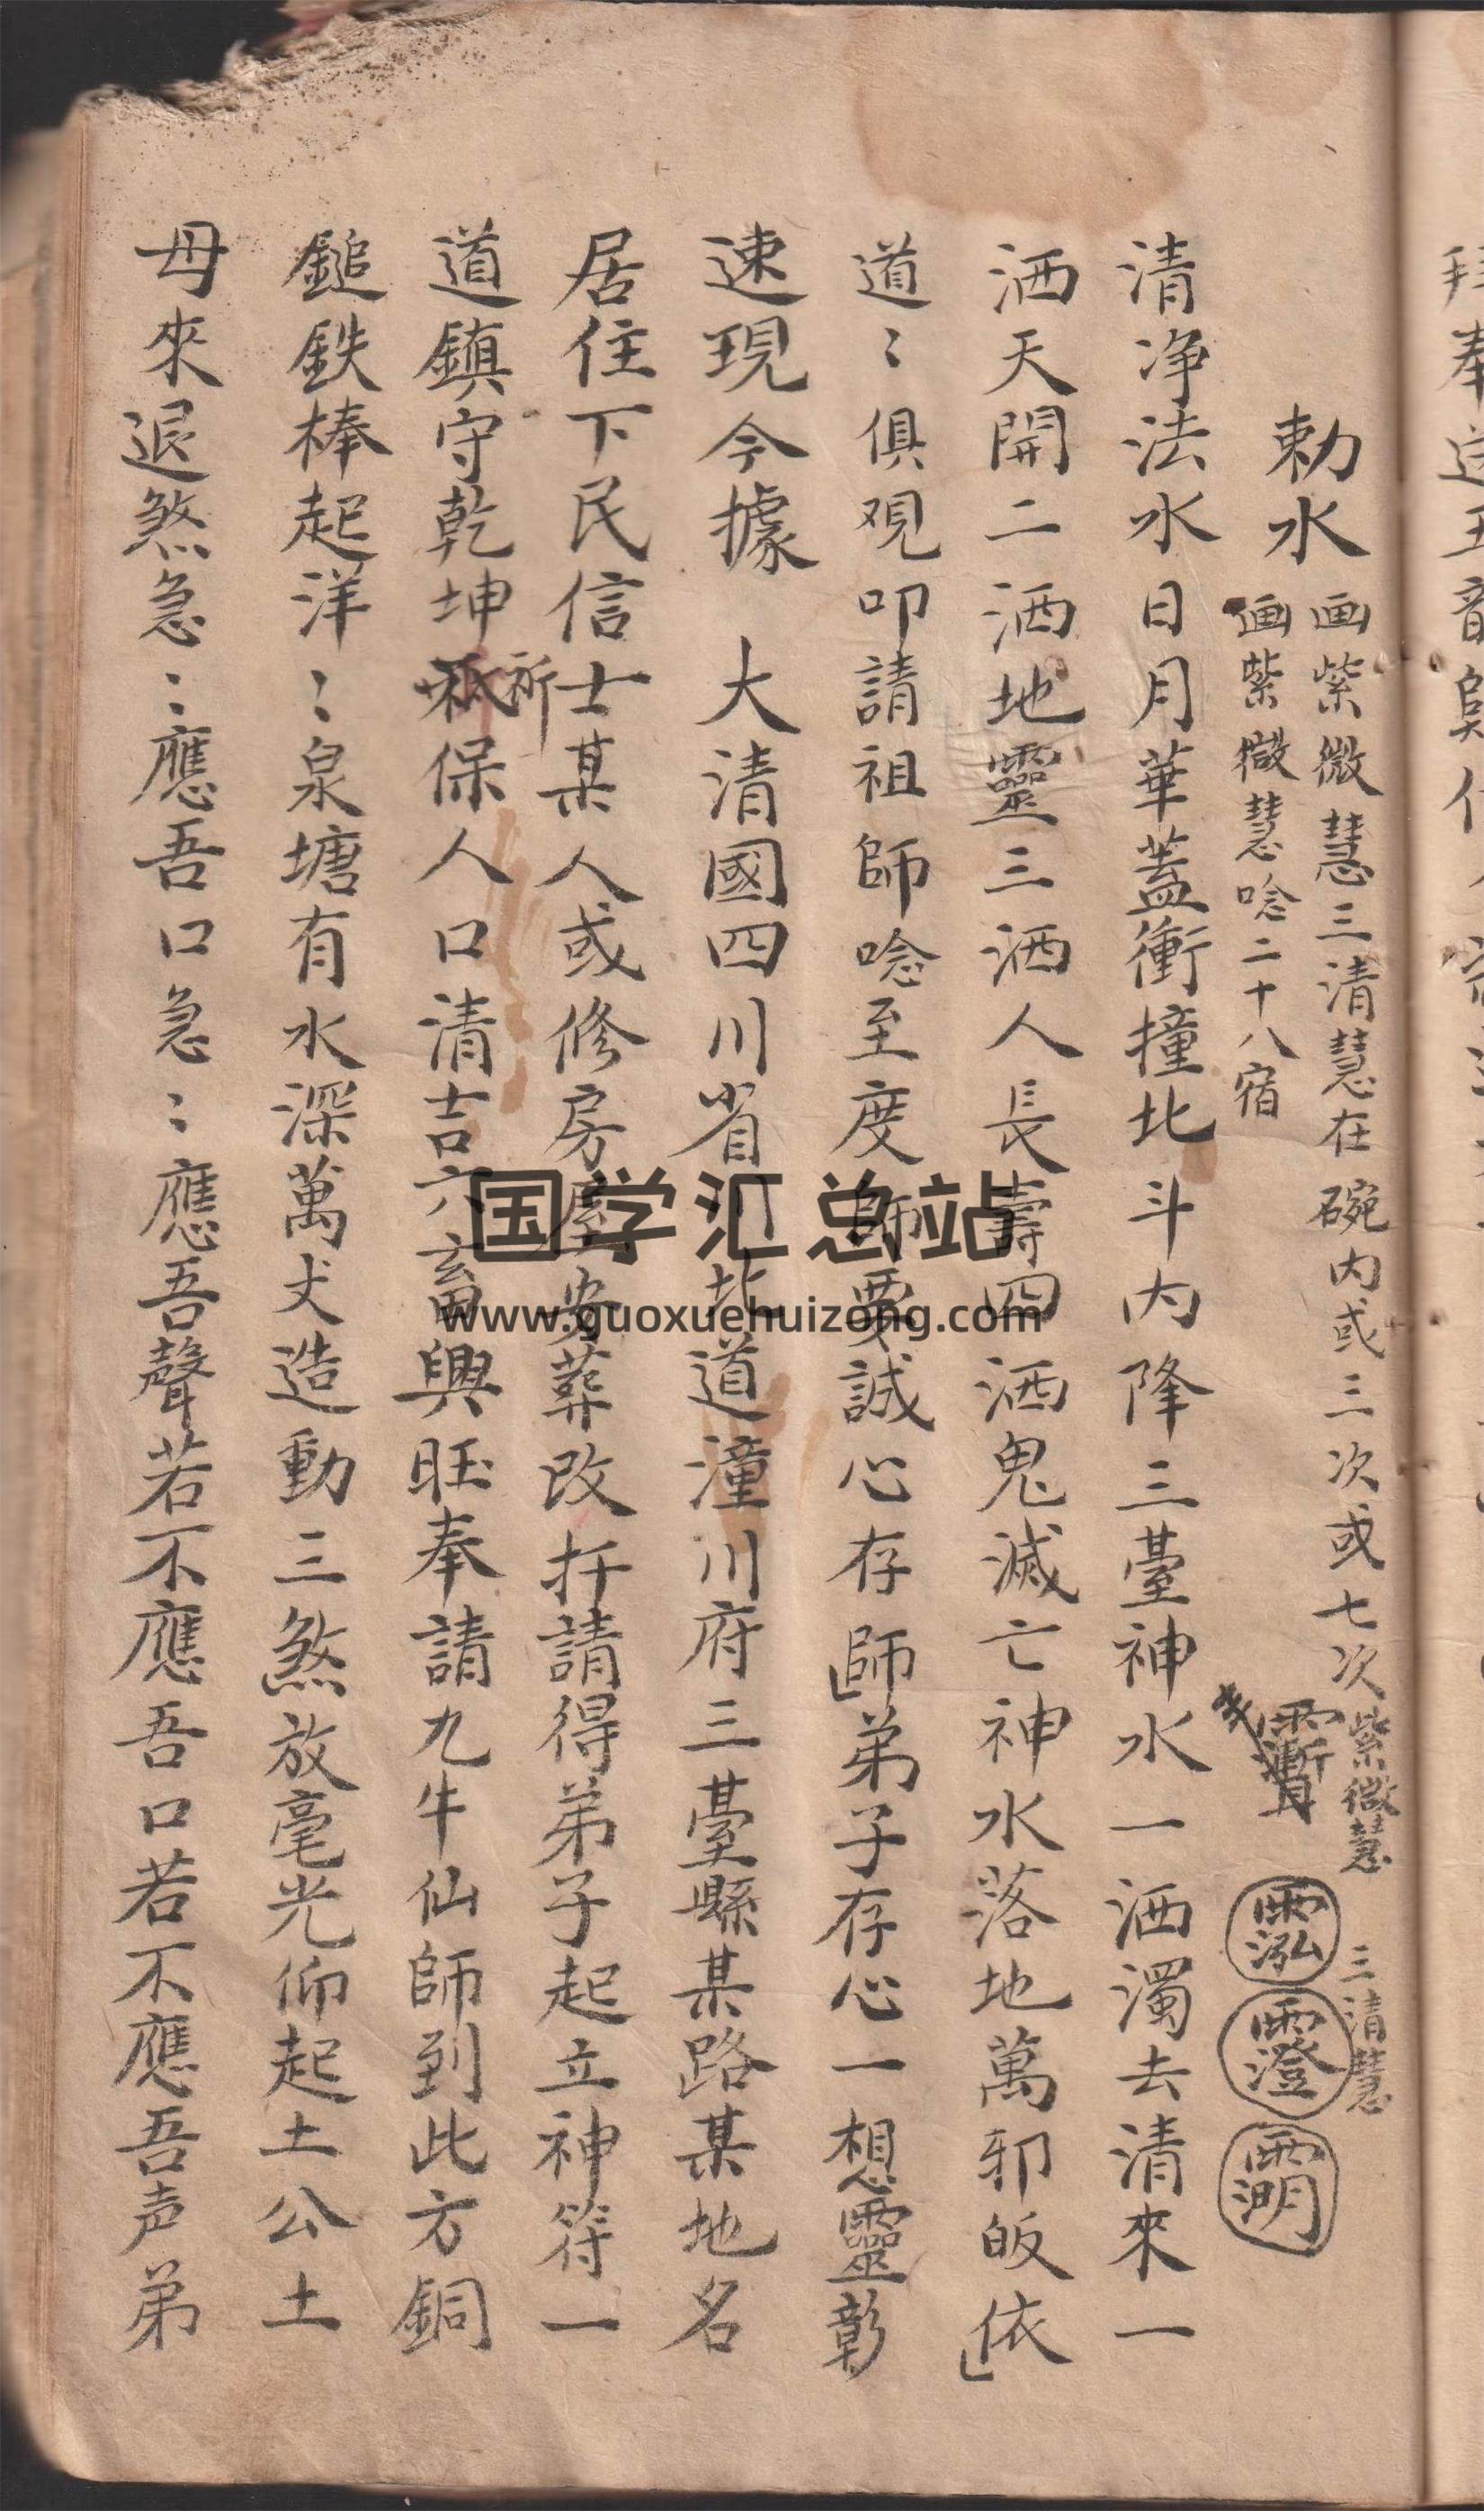 拜奉送五音
勅水
画紫微慧三清慧在碗内或三次或七次紫微慧 三清慧
画紫微慧唸二十八宿
清净法水日月華蓋衝撞北斗内降三臺神水一洒濁去清來一
洒天開二洒地靈三洒人長壽四洒鬼滅亡神水落地萬邪皈依
道〻俱現叩請祖師唸至度師要誠心存師弟子存心一想靈彰
速現今據 大清國四川省北道潼川府三臺縣某路某地名
居住下民信士某人或修房屋安葬改扦請得弟子起立神符一
道鎮守乾坤祈保人口清吉六畜興旺奉請九牛仙師到此方銅
鎚鉄棒起洋〻泉塘有水深萬丈造動三煞放毫光仰起土公土
母來退煞急〻應吾口急〻應吾聲若不應吾口若不應吾声弟
国学汇总站
www.guoxuehuizong.com